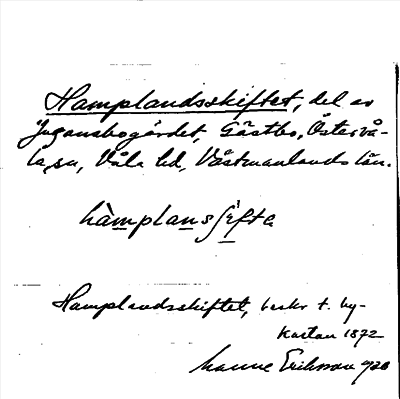 Hamplandsskiftet, del av
Jugansbogärdet, Gästbo, Östervå-
la sn, Våla hd, Västmanlands län.
hàmplansʃefta
Hamplandsskiftet, beskr t. by-
kartan 1872
Hanne Eriksson